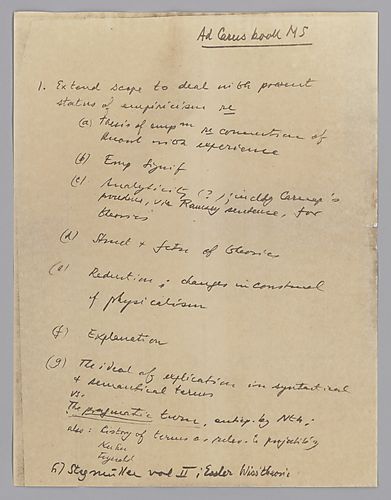 Ad Carus book MS
1. Extend scope to deal with present
status of empiricism re
(a) thesis of empm re connection of
knowl with experience
(b) Emp Signif
(c) Analyticity (?), incldg Carnap's
via Ramsey sentence, for
theories
(d) Struct + fctn of theories
(e) Reduction; changes in construal
of physicalism
(f) Explanation
(g) The ideal of explication in syntactical
+ semantical terms
vs.
The pragmatic turn, antcp. by
also: history of terms as relev. to projectibility
Kuhn
Feyerabd
h) Stegmüller vol II; Essler Wisstheorie